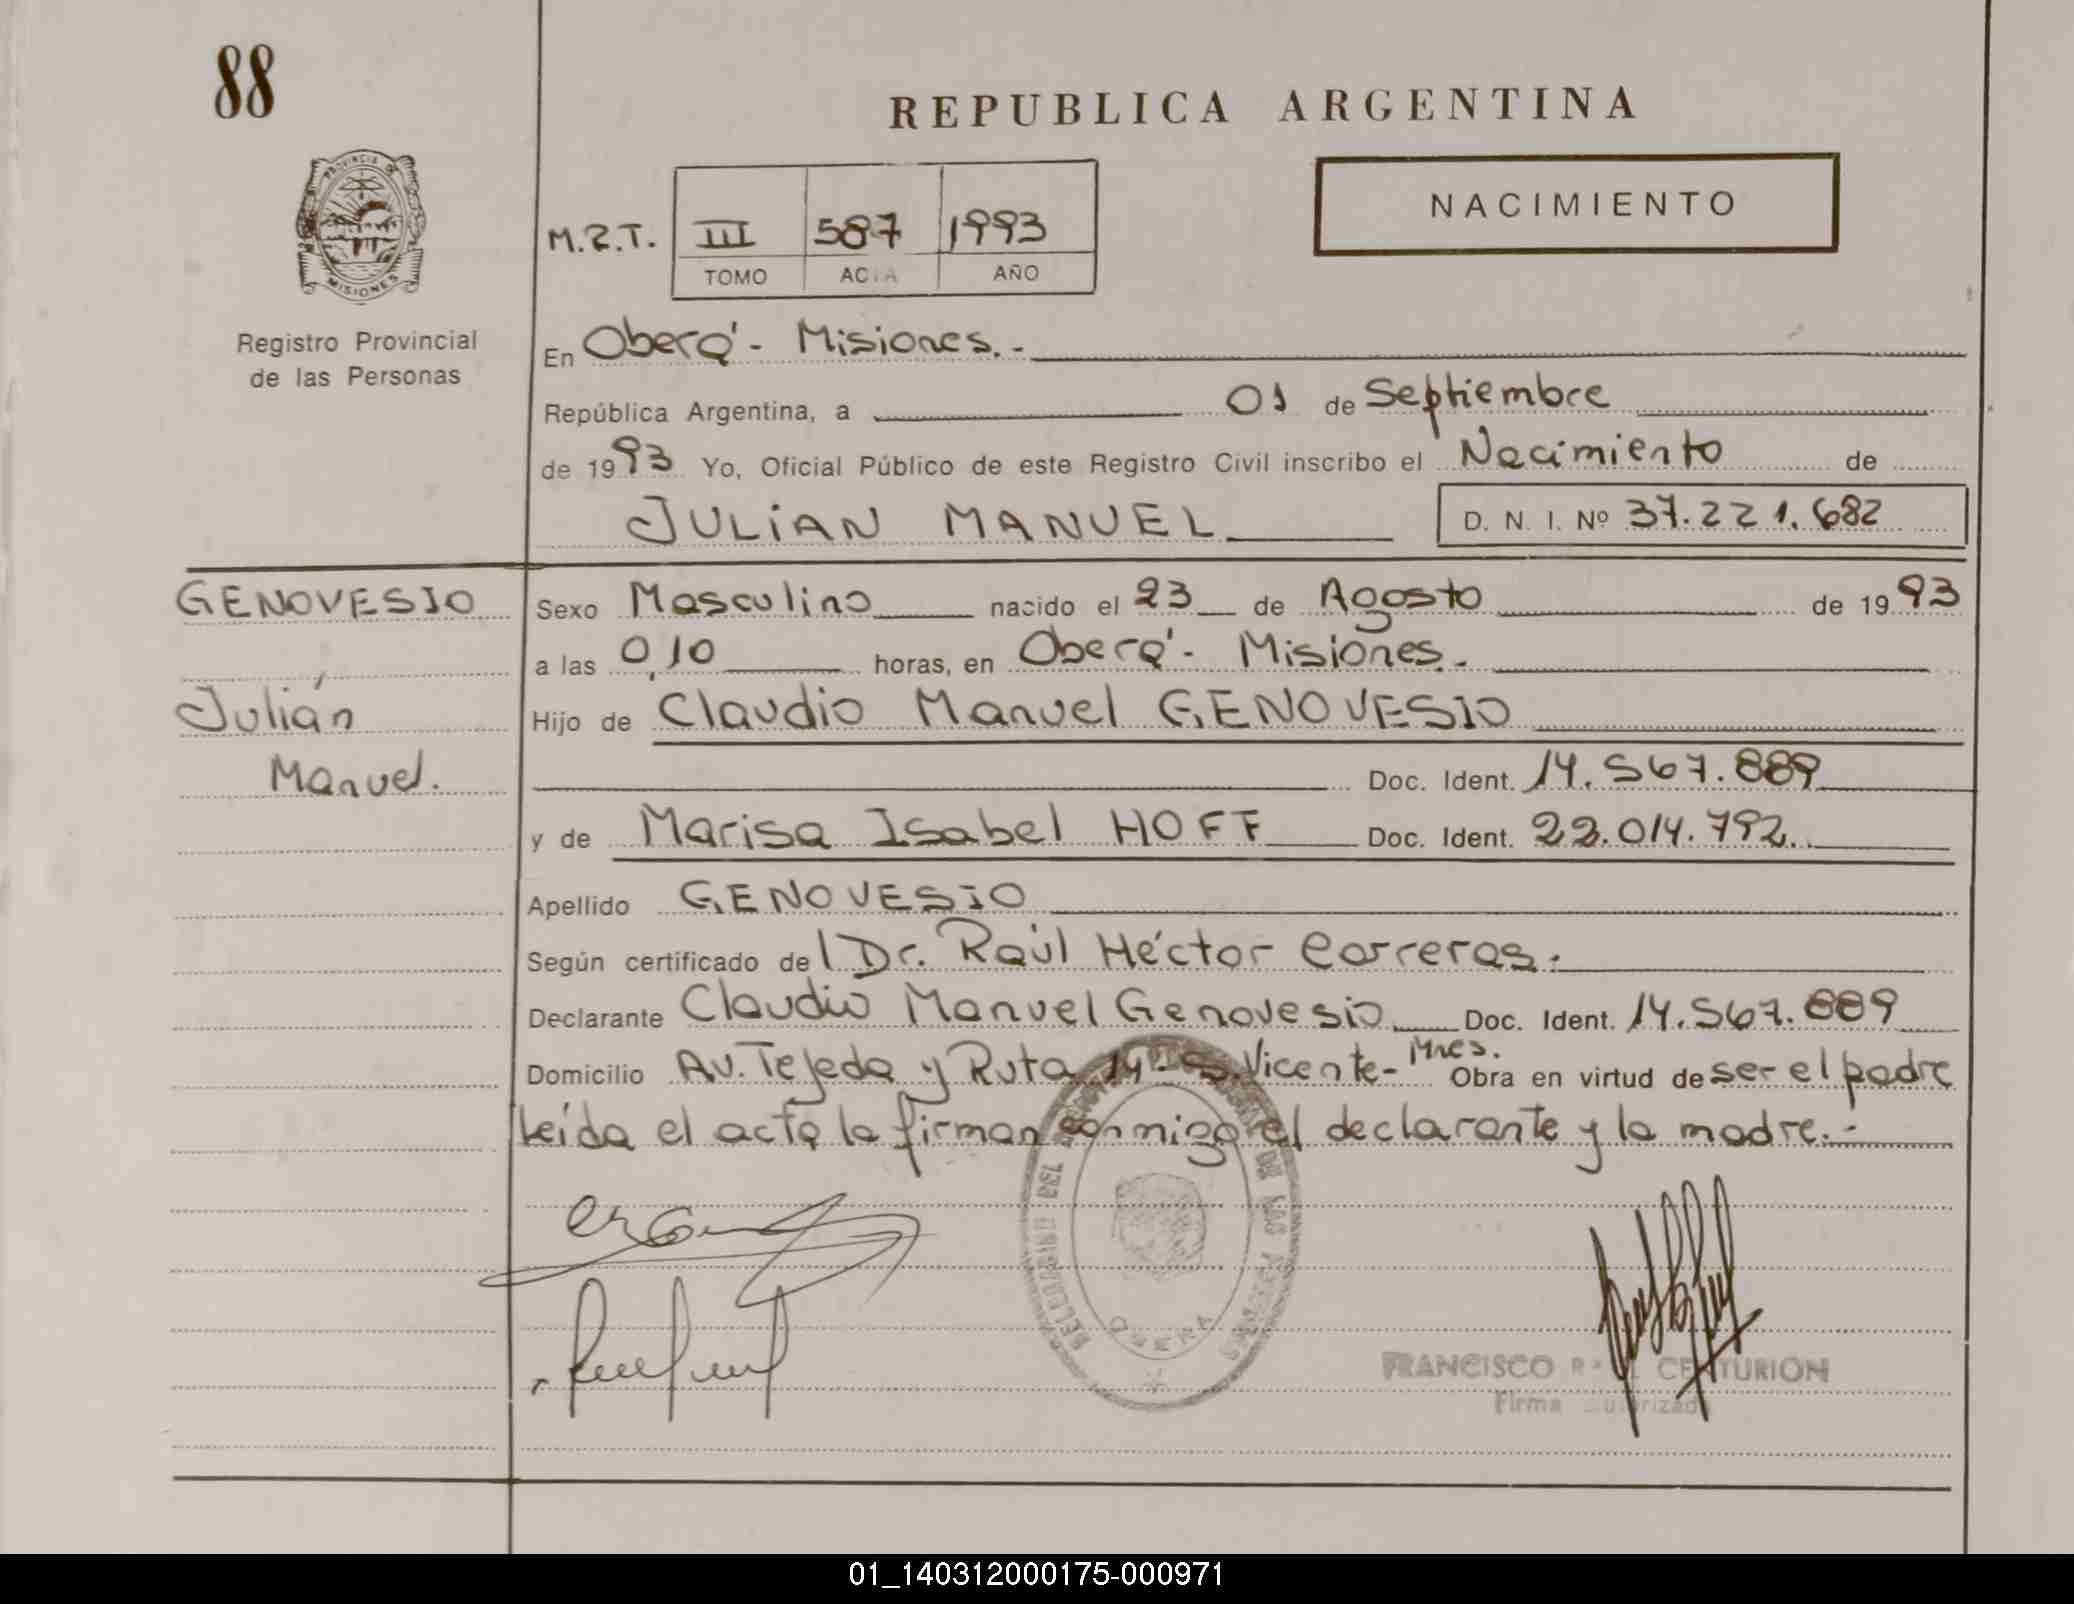 88
REPUBLICA ARGENTINA
NACIMIENTO
PROVINCIA DE
MISIONES
M.Z.T. III 587 1993
TOMO ACTA AÑO
Registro Provincial
de las Personas
En Oberá - Misiones.-
República Argentina, a 01 de Septiembre
de 1993 Yo, Oficial Público de este Registro Civil inscribo el Nacimiento de
JULIAN MANUEL D. N. I. Nº 37.221.682
GENOVESIO
Sexo Masculino nacido el 23 de Agosto de 1993
a las 0,10 horas, en Oberá - Misiones.-
Julián
Hijo de Claudio Manuel GENOVESIO
Manuel.
Doc. Ident. 14.567.889
y de Marisa Isabel HOFF Doc. Ident. 22.014.792.
Apellido GENOVESIO
Según certificado del Dr. Raúl Héctor Carreras.
Declarante Claudio Manuel Genovesio Doc. Ident. 14.567.889
Domicilio Av. Tejeda y Ruta 14 - S. Vicente - Mnes. Obra en virtud de ser el padre
leída el acta la firman conmigo el declarante y la madre.-
DEL REGISTRO DE LAS
OBERA
FRANCISCO CENTURION
Firma Autorizada
01_140312000175-000971